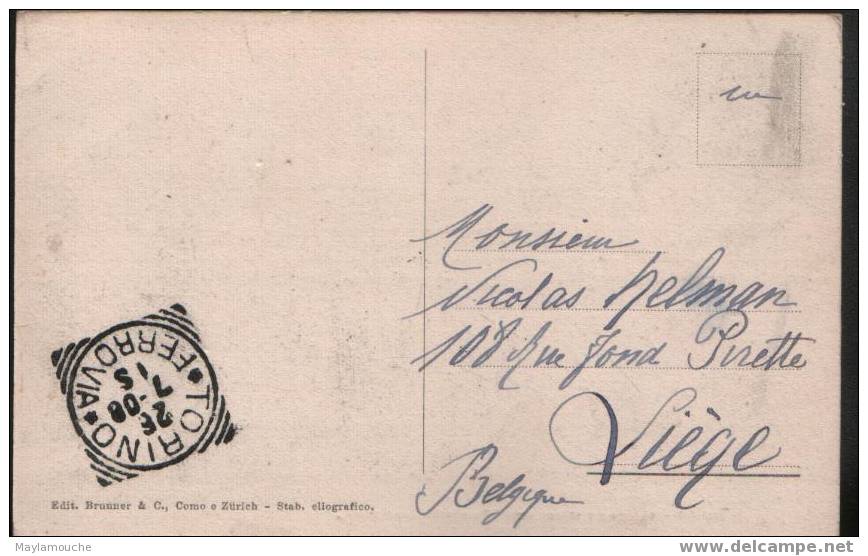 Monsieur
Nicolas Helman
108 Rue Fond Pirette
Liège
Belgique
TORINO * FERROVIA *
2 E
-08
7 S
Edit. Brunner & C., Como e Zürich - Stab. eliografico.
Maylamouche
www.delcampe.net